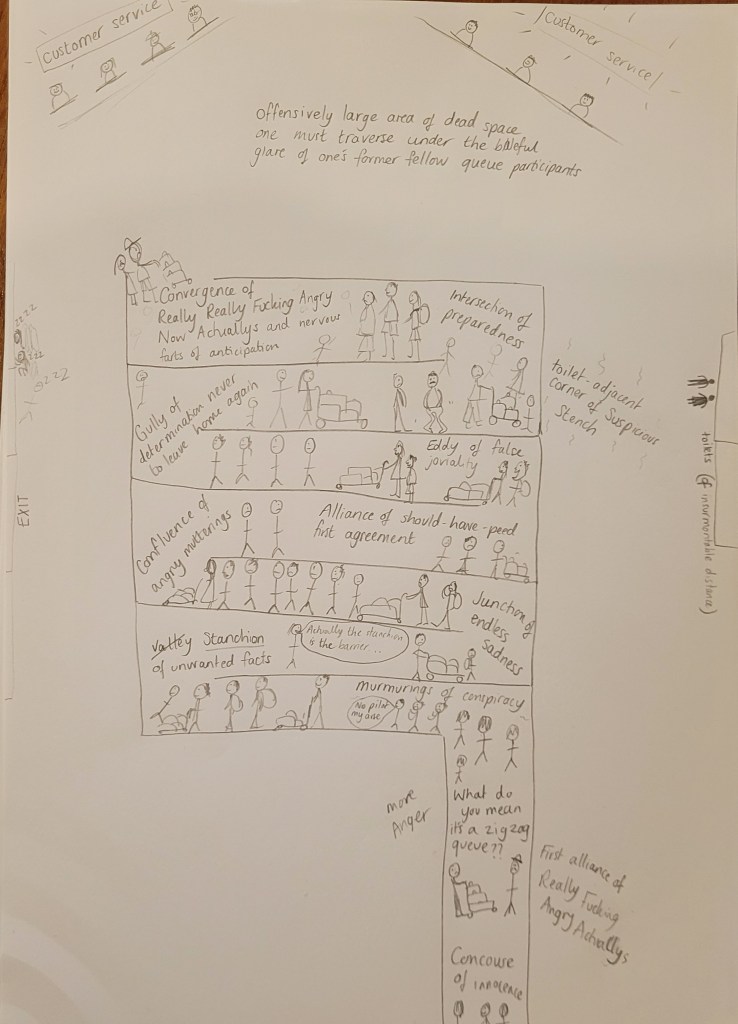 customer service
Customer service
Offensively large area of dead space
one must traverse under the baleful
glare of one's former fellow queue participants
Convergence of
Really Really Fucking Angry
Now Actuallys and nervous
farts of anticipation
Intersection of
preparedness
Gully of
determination never
to leave home again
toilet-adjacent
corner of Suspicious
Stench
toilets (of insurmountable distance)
zzzz
zzz
zzz
EXIT
Eddy of false
joviality
Confluence of
angry mutterings
Alliance of should-have-peed
first agreement
Junction of
endless
sadness
valley Stanchion
of unwanted facts
Actually the stanchion
is the barrier...
murmurings of conspiracy
No pilot
my arse
What do
you mean
it's a zigzag
queue??
more
Anger
First alliance of
Really Fucking
Angry Actuallys
Concouse
of innocence